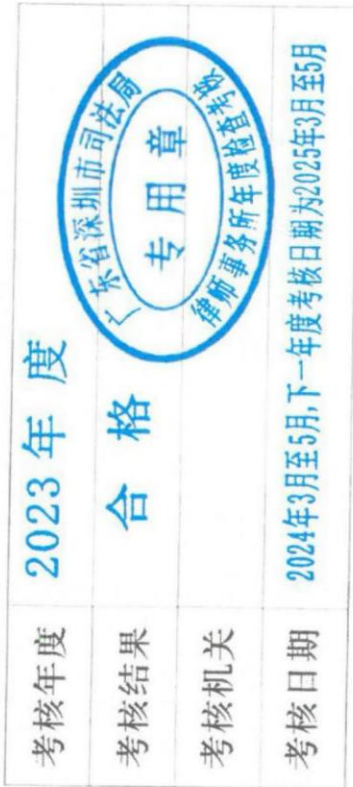 考核年度 2023年度
考核结果 合格
考核机关
广东省深圳市司法局
专用章
律师事务所年度检查考核
考核日期 2024年3月至5月,下一年度考核日期为2025年3月至5月